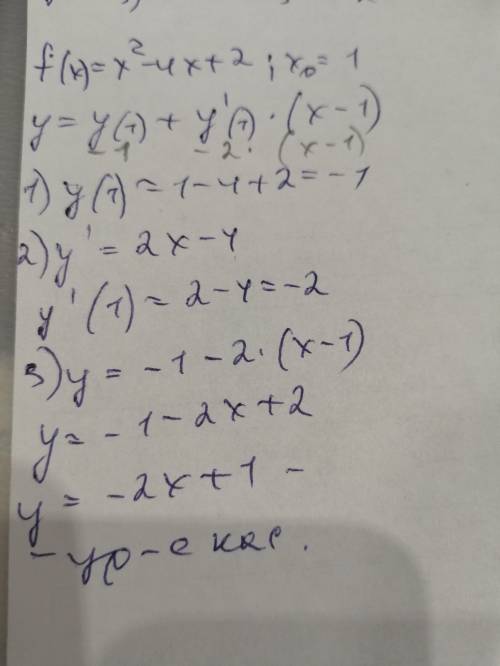 f(x)=x²-4x+2 ; x₀=1
y=y(1)+y'(1)·(x-1)
-1 -2· (x-1)
1) y(1)=1-4+2=-1
2) y'=2x-4
y'(1)=2-4=-2
3) y=-1-2·(x-1)
y=-1-2x+2
y=-2x+1 -
- ур-е кас.